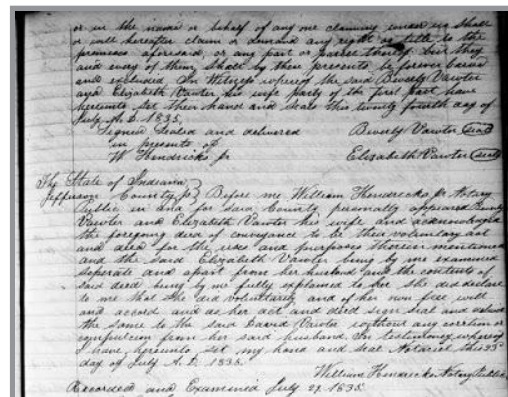 or in the name or behalf of any one claiming under us shall
or will hereafter claim or demand any right or title to the
premises aforesaid, or any part or parcel thereof but they
and every of them, shall by these presents be forever barred
and excluded In Witness whereof the said Beverly Vawter
and Elizabeth Vawter his wife party of the first part have
hereunto set their hands and seals this twenty fourth day of
July A. D. 1835.
Signed Sealed and delivered Beverly Vawter (seal)
in presents of
W Hendricks Jr Elizabeth Vawter (seal)
The State of Indiana
Jefferson County } Before me William Hendricks Jr Notary
Public in and for said County personally appeared Beverly
Vawter and Elizabeth Vawter his wife and acknowledged
the foregoing deed of conveyance to be their voluntary act
and deed for the uses and purposes therein mentioned
and the said Elizabeth Vawter being by me examined
seperate and apart from her husband and the contents of
said deed being by me fully explained to her she did declare
to me that she did voluntarily and of her own free will
and accord and as her act and deed sign seal and
the same to the said David Vawter without any coertion or
compulsion from her said husband. In testimony whereof
I have hereunto set my hand and seal Notarial this
day of July A. D. 1835.
William Hendricks Notary Public
Recorded and Examined July 29. 1835.